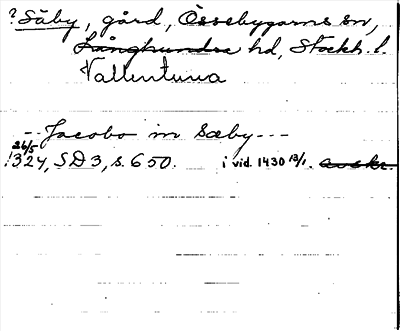 ? Säby, gård, Össebygarns sn,
Långhundra hd, Stockh. l.
Vallentuna
-- Jacobo in Sæby ---
26/5
1324, SD 3, s. 650. i vid. 1430 13/1. avskr.